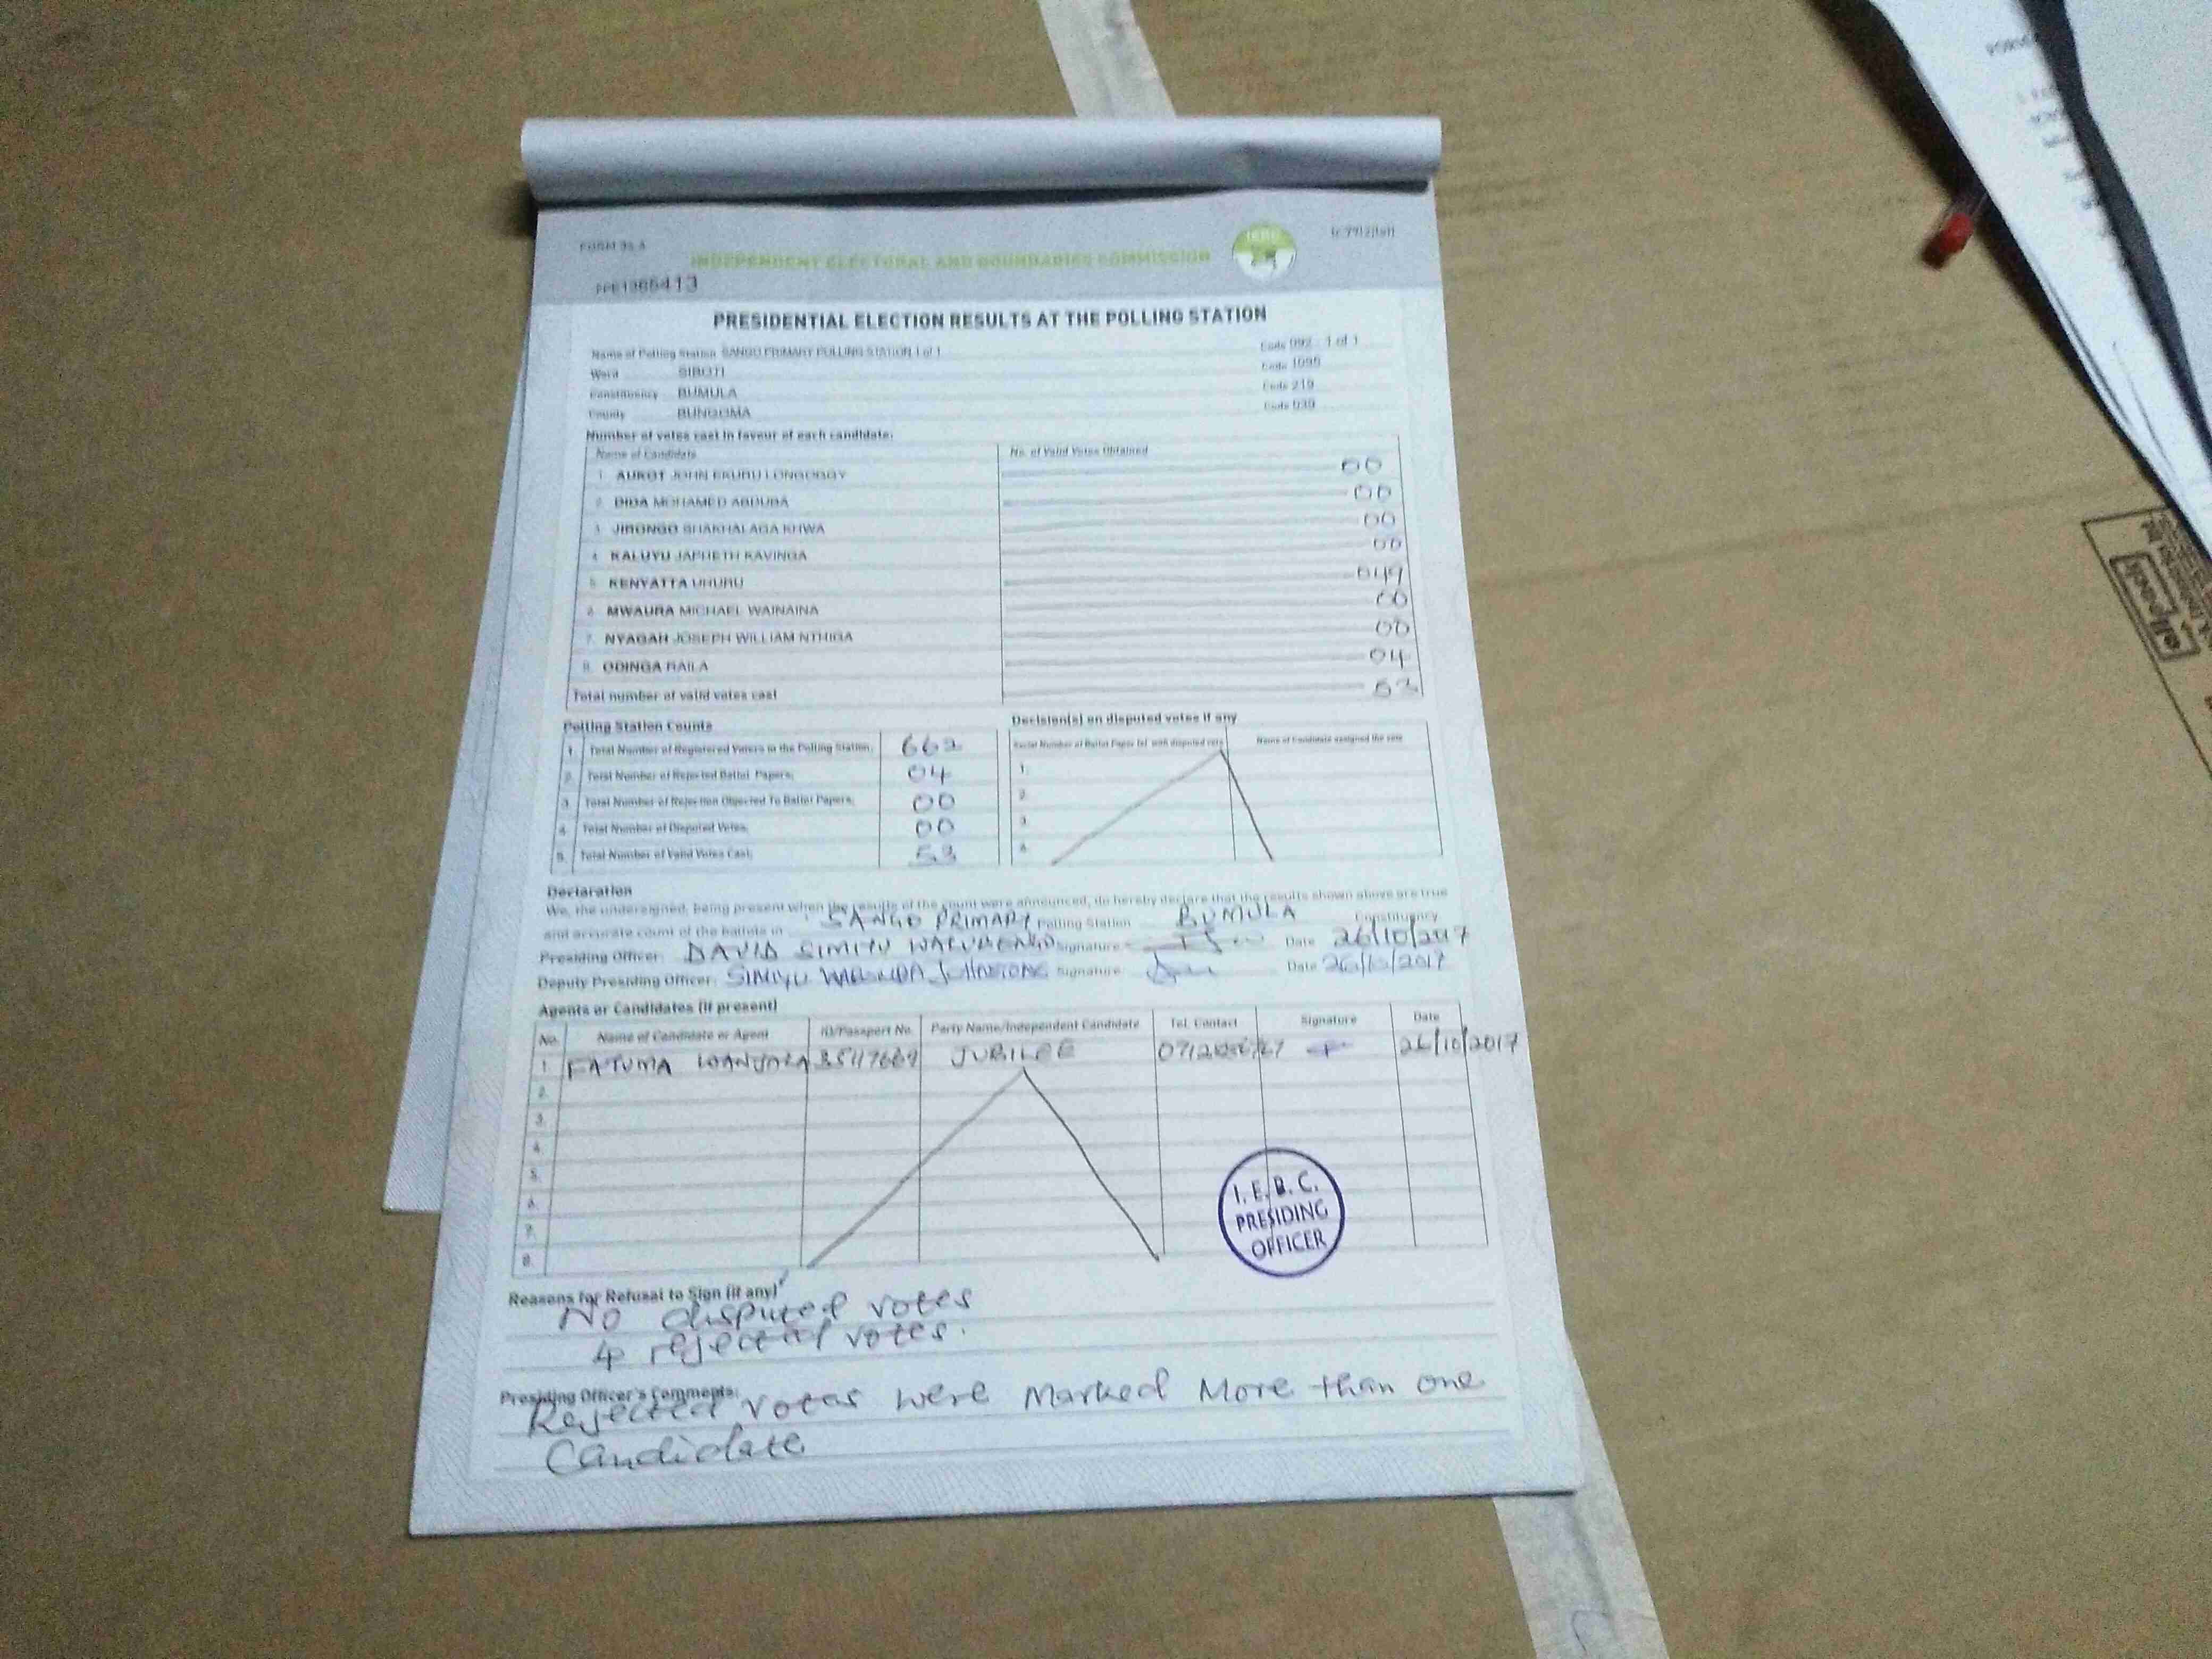 FORM 34 A
INDEPENDENT ELECTORAL AND BOUNDARIES COMMISSION
IEBC
PRESIDENTIAL ELECTION RESULTS AT THE POLLING STATION
Name of Polling Station SANGO PRIMARY POLLING STATION 1 of 1 Code 092 1 of 1
Ward SIBOTI Code 1095
Constituency BUMULA Code 219
County BUNGOMA Code 039
Number of votes cast in favour of each candidate:
Name of Candidate No. of Valid Votes Obtained
1. AUKOT JOHN EKURU LONGOGGY 00
2. DIDA MOHAMED ABDUBA 00
3. JIRONGO SHAKHALAGA KHWA 00
4. KALUYU JAPHETH KAVINGA 00
5. KENYATTA UHURU 049
6. MWAURA MICHAEL WAINAINA 00
7. NYAGAH JOSEPH WILLIAM NTHIGA 00
8. ODINGA RAILA 04
Total number of valid votes cast 53
Polling Station Counts
1. Total Number of Registered Voters in the Polling Station; 662
2. Total Number of Rejected Ballot Papers; 04
3. Total Number of Rejection Objected To Ballot Papers; 00
4. Total Number of Disputed Votes; 00
5. Total Number of Valid Votes Cast; 53
Decision(s) on disputed votes if any
Serial Number of Ballot Paper (s) with disputed vote Name of Candidate assigned the vote
1.
2.
3.
4.
Declaration
We, the undersigned, being present when the results of the count were announced, do hereby declare that the results shown above are true
and accurate count of the ballots in SANGO PRIMARY Polling Station BUMULA Constituency
Presiding Officer: DAVID SIMIYU Signature Date 26/10/2017
Deputy Presiding Officer: SIMIYU Signature Date 26/10/2017
Agents or Candidates (if present)
No. Name of Candidate or Agent ID/Passport No. Party Name/Independent Candidate Tel. Contact Signature Date
1. FATUMA JUBILEE 26/10/2017
2.
3.
4.
5.
6.
7.
8.
I. E. B. C.
PRESIDING
OFFICER
Reasons for Refusal to Sign (if any)
No disputed votes
4 rejected votes.
Presiding Officer's Comments:
Rejected votes were Marked More than one
Candidate
ellypack